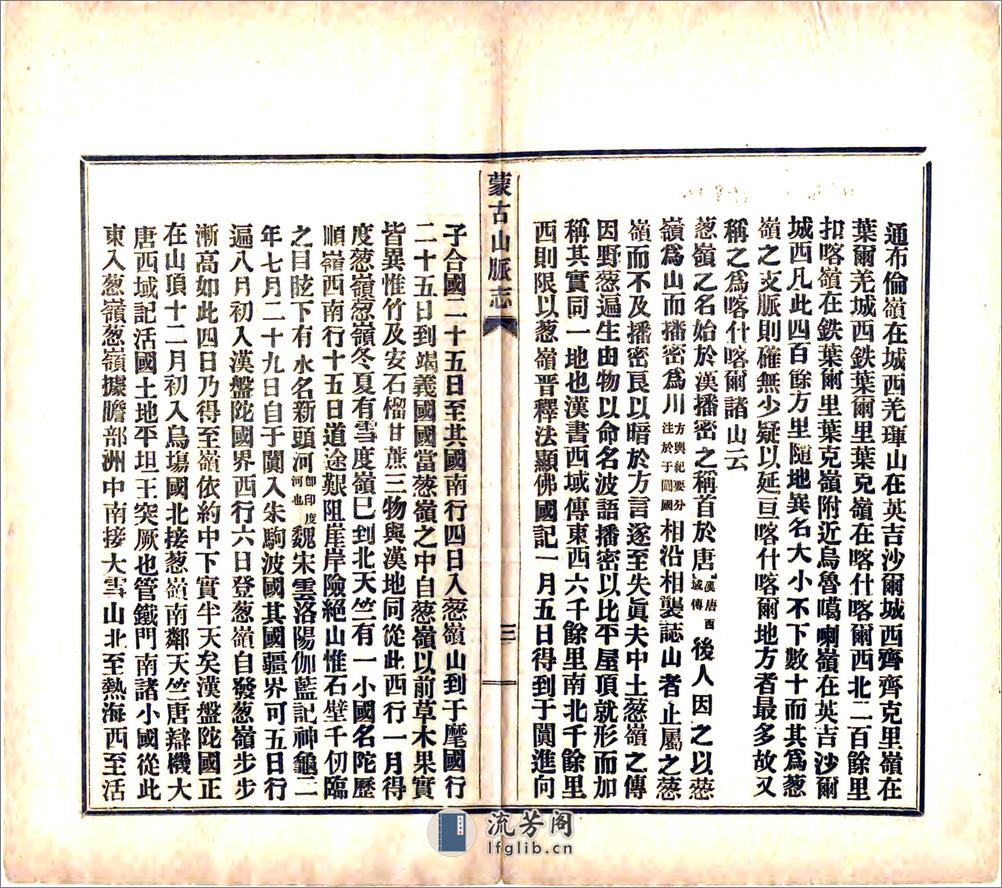 通布倫嶺在城西羌琿山在英吉沙爾城西齊齊克里嶺在
葉爾羌城西鉄葉爾里葉克嶺在喀什喀爾西北二百餘里
扣喀嶺在鉄葉爾里葉克嶺附近烏魯噶喇嶺在英吉沙爾
城西凡此四百餘方里隨地異名大小不下數十而其爲葱
嶺之支脈則確無少疑以延亘喀什喀爾地方者最多故又
稱之爲喀什喀爾諸山云
葱嶺之名始於漢播密之稱首於唐漢唐西域傳後人因之以葱
嶺爲山而播密爲川方輿紀要分注於于闐國相沿相襲誌山者止屬之葱
嶺而不及播密艮以暗於方言遂至失眞夫中土葱嶺之傳
因野葱遍生由物以命名波語播密以比平屋頂就形而加
稱其實同一地也漢書西域傳東西六千餘里南北千餘里
西則限以葱嶺晋釋法顯佛國記一月五日得到于闐進向
蒙古山脈志
三
子合國二十五日至其國南行四日入葱嶺山到于麾國行
二十五日到竭義國國當葱嶺之中自葱嶺以前草木果實
皆異惟竹及安石榴甘蔗三物與漢地同從此西行一月得
度葱嶺葱嶺冬夏有雪度嶺已到北天竺有一小國名陀歷
順嶺西南行十五日道途艱阻崖岸險絕山惟石壁千仞臨
之目眩下有水名新頭河卽印度河也魏宋雲洛陽伽藍記神龜二
年七月二十九日自于闐入朱駒波國其國疆界可五日行
遍八月初入漢盤陀國界西行六日登葱嶺自發葱嶺步步
漸高如此四日乃得至嶺依約中下實半天矣漢盤陀國正
在山頂十二月初入烏塲國北接葱嶺南鄰天竺唐辯機大
唐西域記活國土地平坦王突厥也管鐵門南諸小國從此
東入葱嶺葱嶺據贍部洲中南接大雪山北至熱海西至活
流芳阁
lfglib.cn